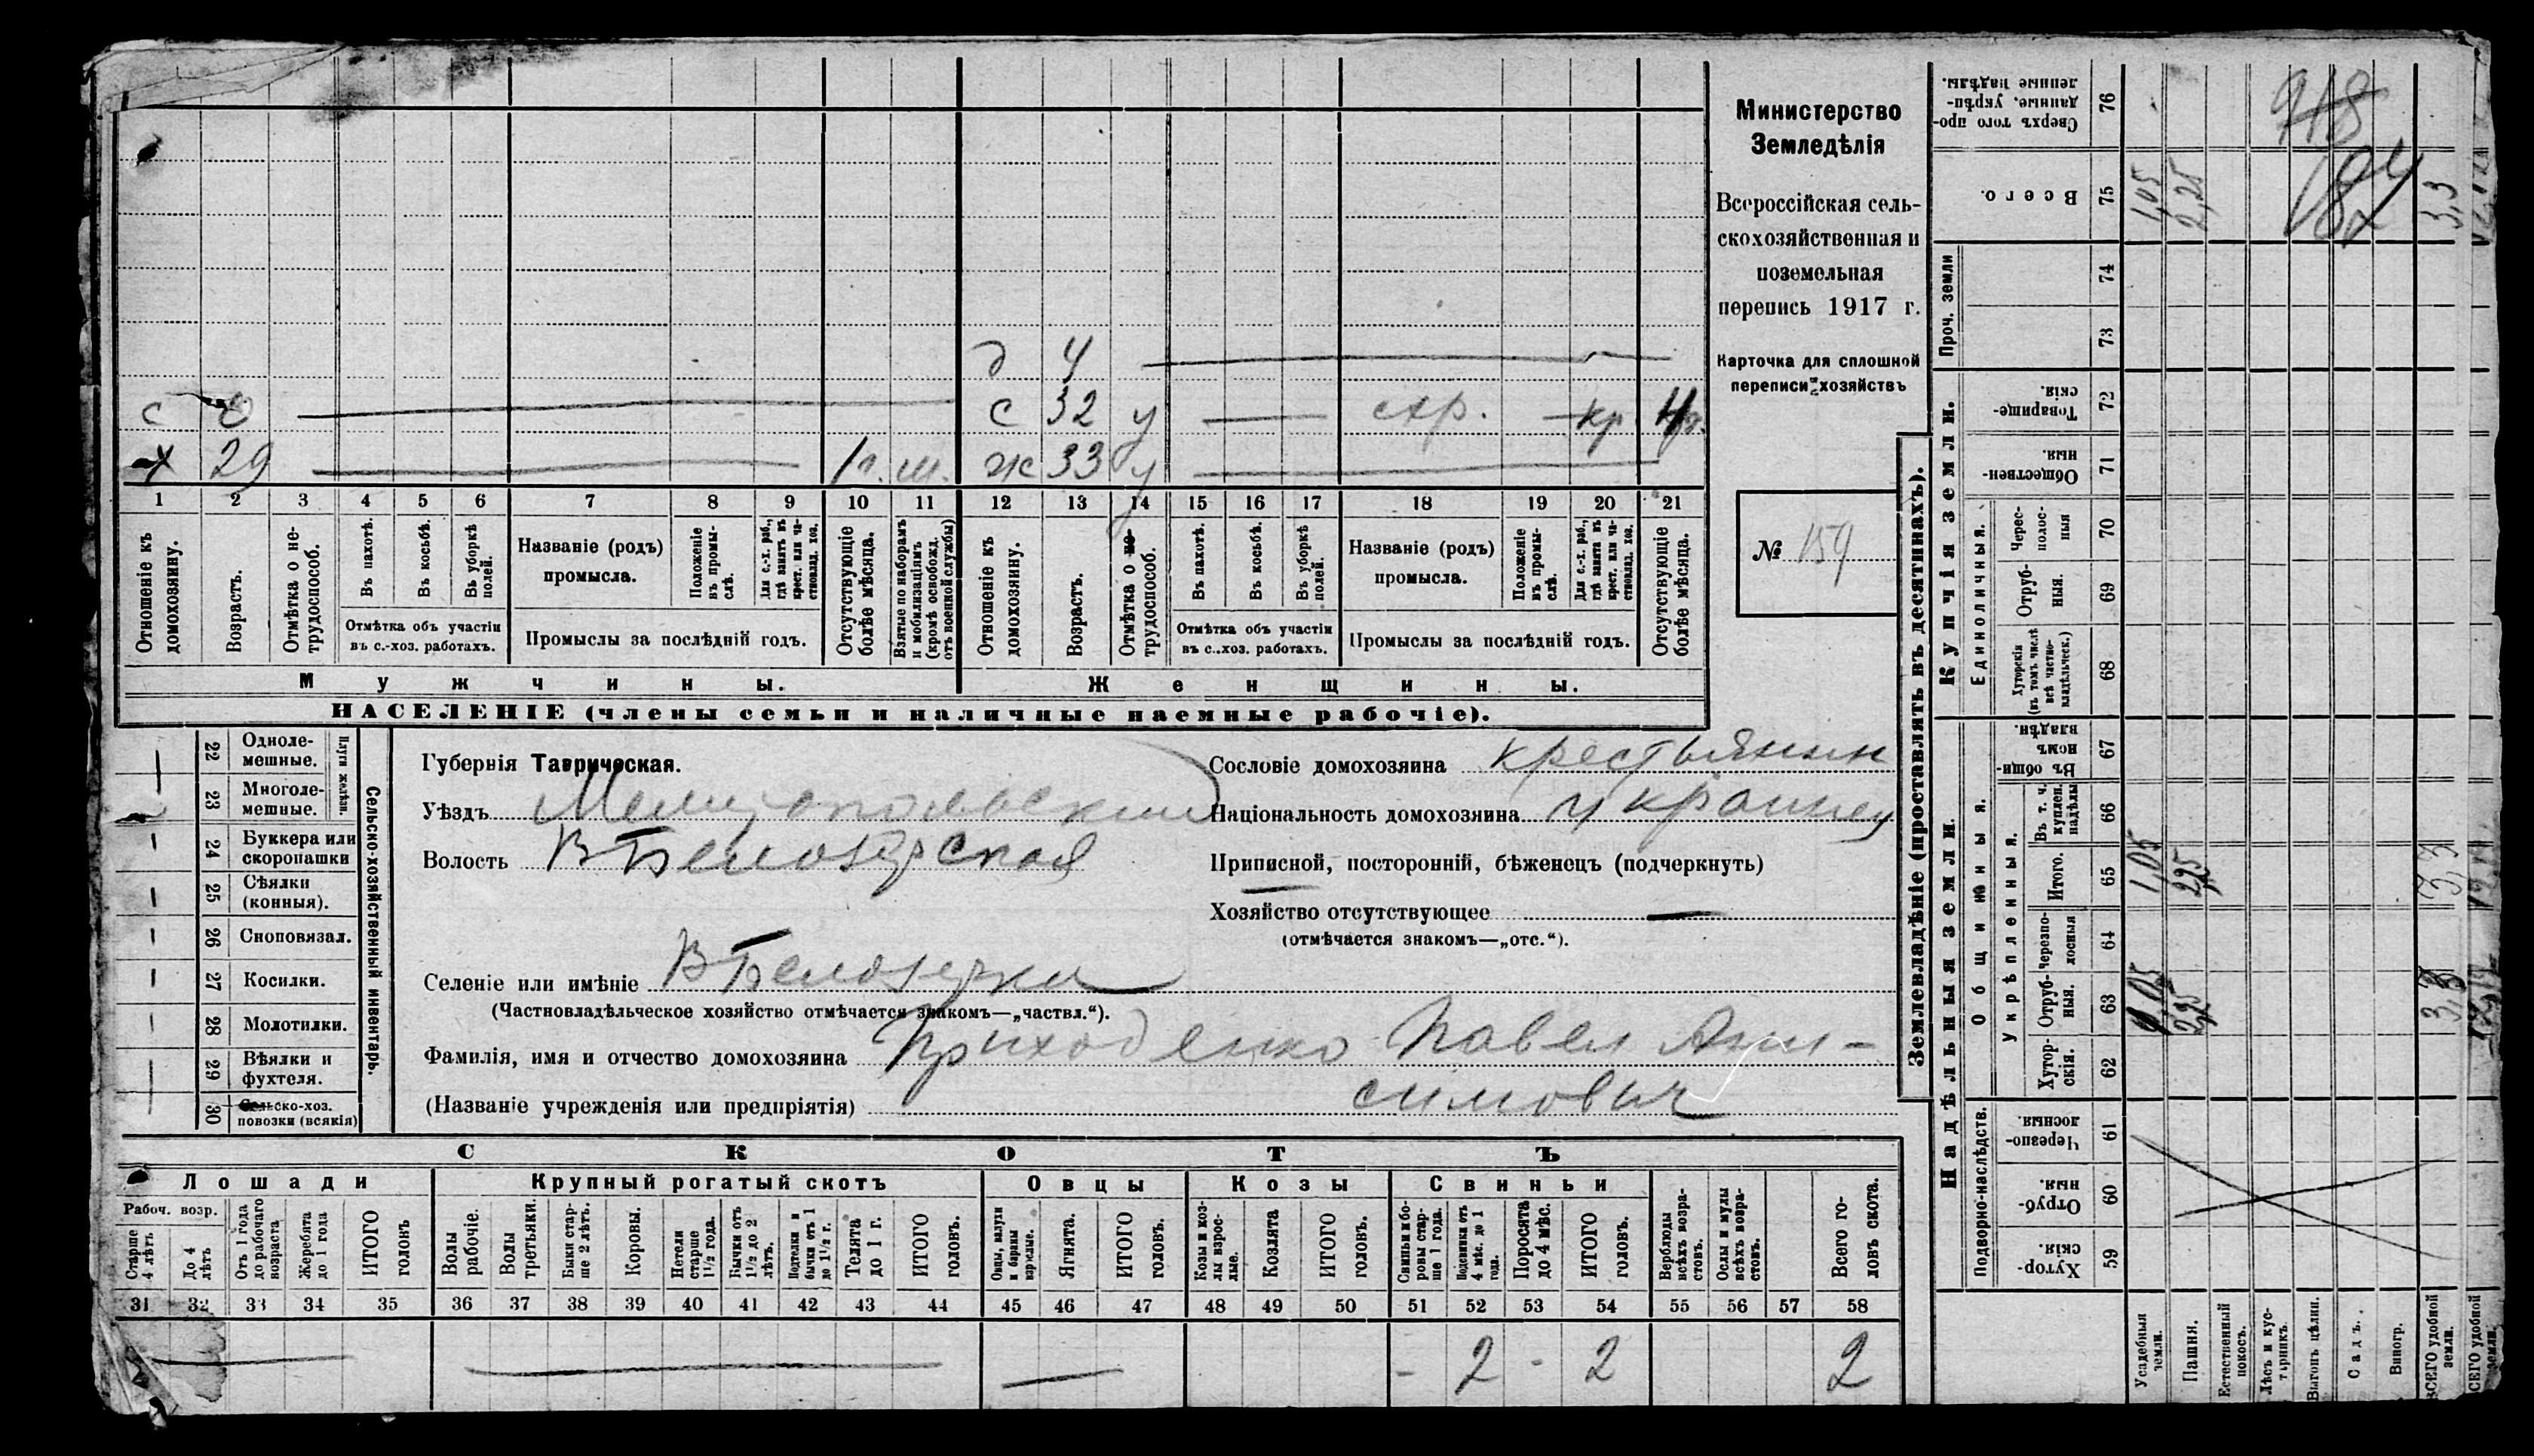 Министерство
Земледѣлія
Всероссійская сель-
скохозяйственная и
поземельная
перепись 1917 г.
Карточка для сплошной
переписи хозяйствъ
№ 159
д 4
с 0 с 32 у кр.
х 29 1 г. ж 33 у
1 2 3 4 5 6 7 8 9 10 11 12 13 14 15 16 17 18 19 20 21
Отношеніе къ домохозяину.
Возрастъ.
Отмѣтка о не-трудоспособ.
Въ пахотѣ.
Въ косьбѣ.
Въ уборкѣ полей.
Отмѣтка объ участіи
въ с.-хоз. работахъ.
Названіе (родъ)
промысла.
Положеніе въ промы-слѣ.
Для с.-х. раб., гдѣ занятъ въ крест. или ча-стновлад. хоз.
Промыслы за послѣдній годъ.
Отсутствующіе болѣе мѣсяца.
Взятые по наборамъ и мобилизаціямъ (кромѣ освобожд. отъ военной службы)
Отношеніе къ домохозяину.
Возрастъ.
Отмѣтка о не-трудоспособ.
Въ пахотѣ.
Въ косьбѣ.
Въ уборкѣ полей.
Отмѣтка объ участіи
въ с.-хоз. работахъ.
Названіе (родъ)
промысла.
Положеніе въ промы-слѣ.
Для с.-х. раб., гдѣ занята въ крест. или ча-стновлад. хоз.
Промыслы за послѣдній годъ.
Отсутствующіе болѣе мѣсяца.
Мужчины. Женщины.
НАСЕЛЕНІЕ (члены семьи и наличные наемные рабочіе).
Сельско-хозяйственный инвентарь.
Плуги желѣзн.
22 Одноле-
мешные.
23 Многоле-
мешные.
24 Буккера или
скоропашки
25 Сѣялки
(конныя).
26 Сноповязал.
27 Косилки.
28 Молотилки.
29 Вѣялки и
фухтеля.
30 Сельско-хоз.
повозки (всякія)
Губернія Таврическая.
Уѣздъ Мелитопольский
Волость В Белозерская
Селеніе или имѣніе В Белозерка
(Частновладѣльческое хозяйство отмѣчается знакомъ—„частвл.“).
Фамилія, имя и отчество домохозяина Приходенко Павел Ани-
(Названіе учрежденія или предпріятія) симович
Сословіе домохозяина крестьянин
Національность домохозяина украинец
Приписной, посторонній, бѣженецъ (подчеркнуть)
Хозяйство отсутствующее —
(отмѣчается знакомъ—„отс.“).
СКОТЪ
Лошади Крупный рогатый скотъ Овцы Козы Свиньи
Рабоч. возр.
Старше 4 лѣтъ
До 4 лѣтъ
Отъ 1 года до рабочаго возраста
Жеребята до 1 года
ИТОГО головъ
Волы рабочіе.
Волы третьяки.
Быки стар-ше 2 лѣтъ.
Коровы.
Нетели старше 1½ года.
Бычки отъ 1½ до 2 лѣтъ.
Подтелки и бычки отъ 1 до 1½ г.
Телята до 1 г.
ИТОГО головъ.
Овцы, валухи и бараны взрослые.
Ягнята.
ИТОГО головъ.
Козы и коз-лы взрос-лые.
Козлята
ИТОГО головъ.
Свиньи и бо-ровы стар-ше 1 года.
Подсвинки отъ 4 мѣс. до 1 года.
Поросята до 4 мѣс.
ИТОГО головъ.
Верблюды всѣхъ возра-стовъ.
Ослы и мулы всѣхъ возра-стовъ.
Всего го-ловъ скота.
31 32 33 34 35 36 37 38 39 40 41 42 43 44 45 46 47 48 49 50 51 52 53 54 55 56 57 58
— — — - 2 - 2 2
Землевладѣніе (проставлять въ десятинахъ).
Надѣльныя земли. Купчія земли.
Проч. земли
Подворно-наслѣдств.
Общинныя.
Укрѣпленныя.
Единоличныя.
Сверхъ того про-данные, укрѣп-ленные надѣлы. 76
Всего. 75 1,05 2,25 3,3
74
73
Товарище-скія. 72
Обществен-ныя. 71
Черес-полос-ныя 70
Отруб-ныя. 69
Хуторскія (въ томъ числѣ всѣ частно-владѣльческ.) 68
Въ общи-номъ владѣн. 67
Въ т. ч. куплен. надѣлы 66
Итого. 65 1,05 2,25 3,3
Черезпо-лосныя 64
Отруб-ныя. 63 2,25 3,3
Хутор-скія. 62
Черезпо-лосныя 61
Отруб-ныя. 60
Хутор-скія. 59
Усадебныя земли.
Пашня.
Естественный покосъ.
Лѣсъ и кус-тарникъ.
Выгонъ цѣлин.
Садъ.
Виногр.
ВСЕГО удобной земли.
918